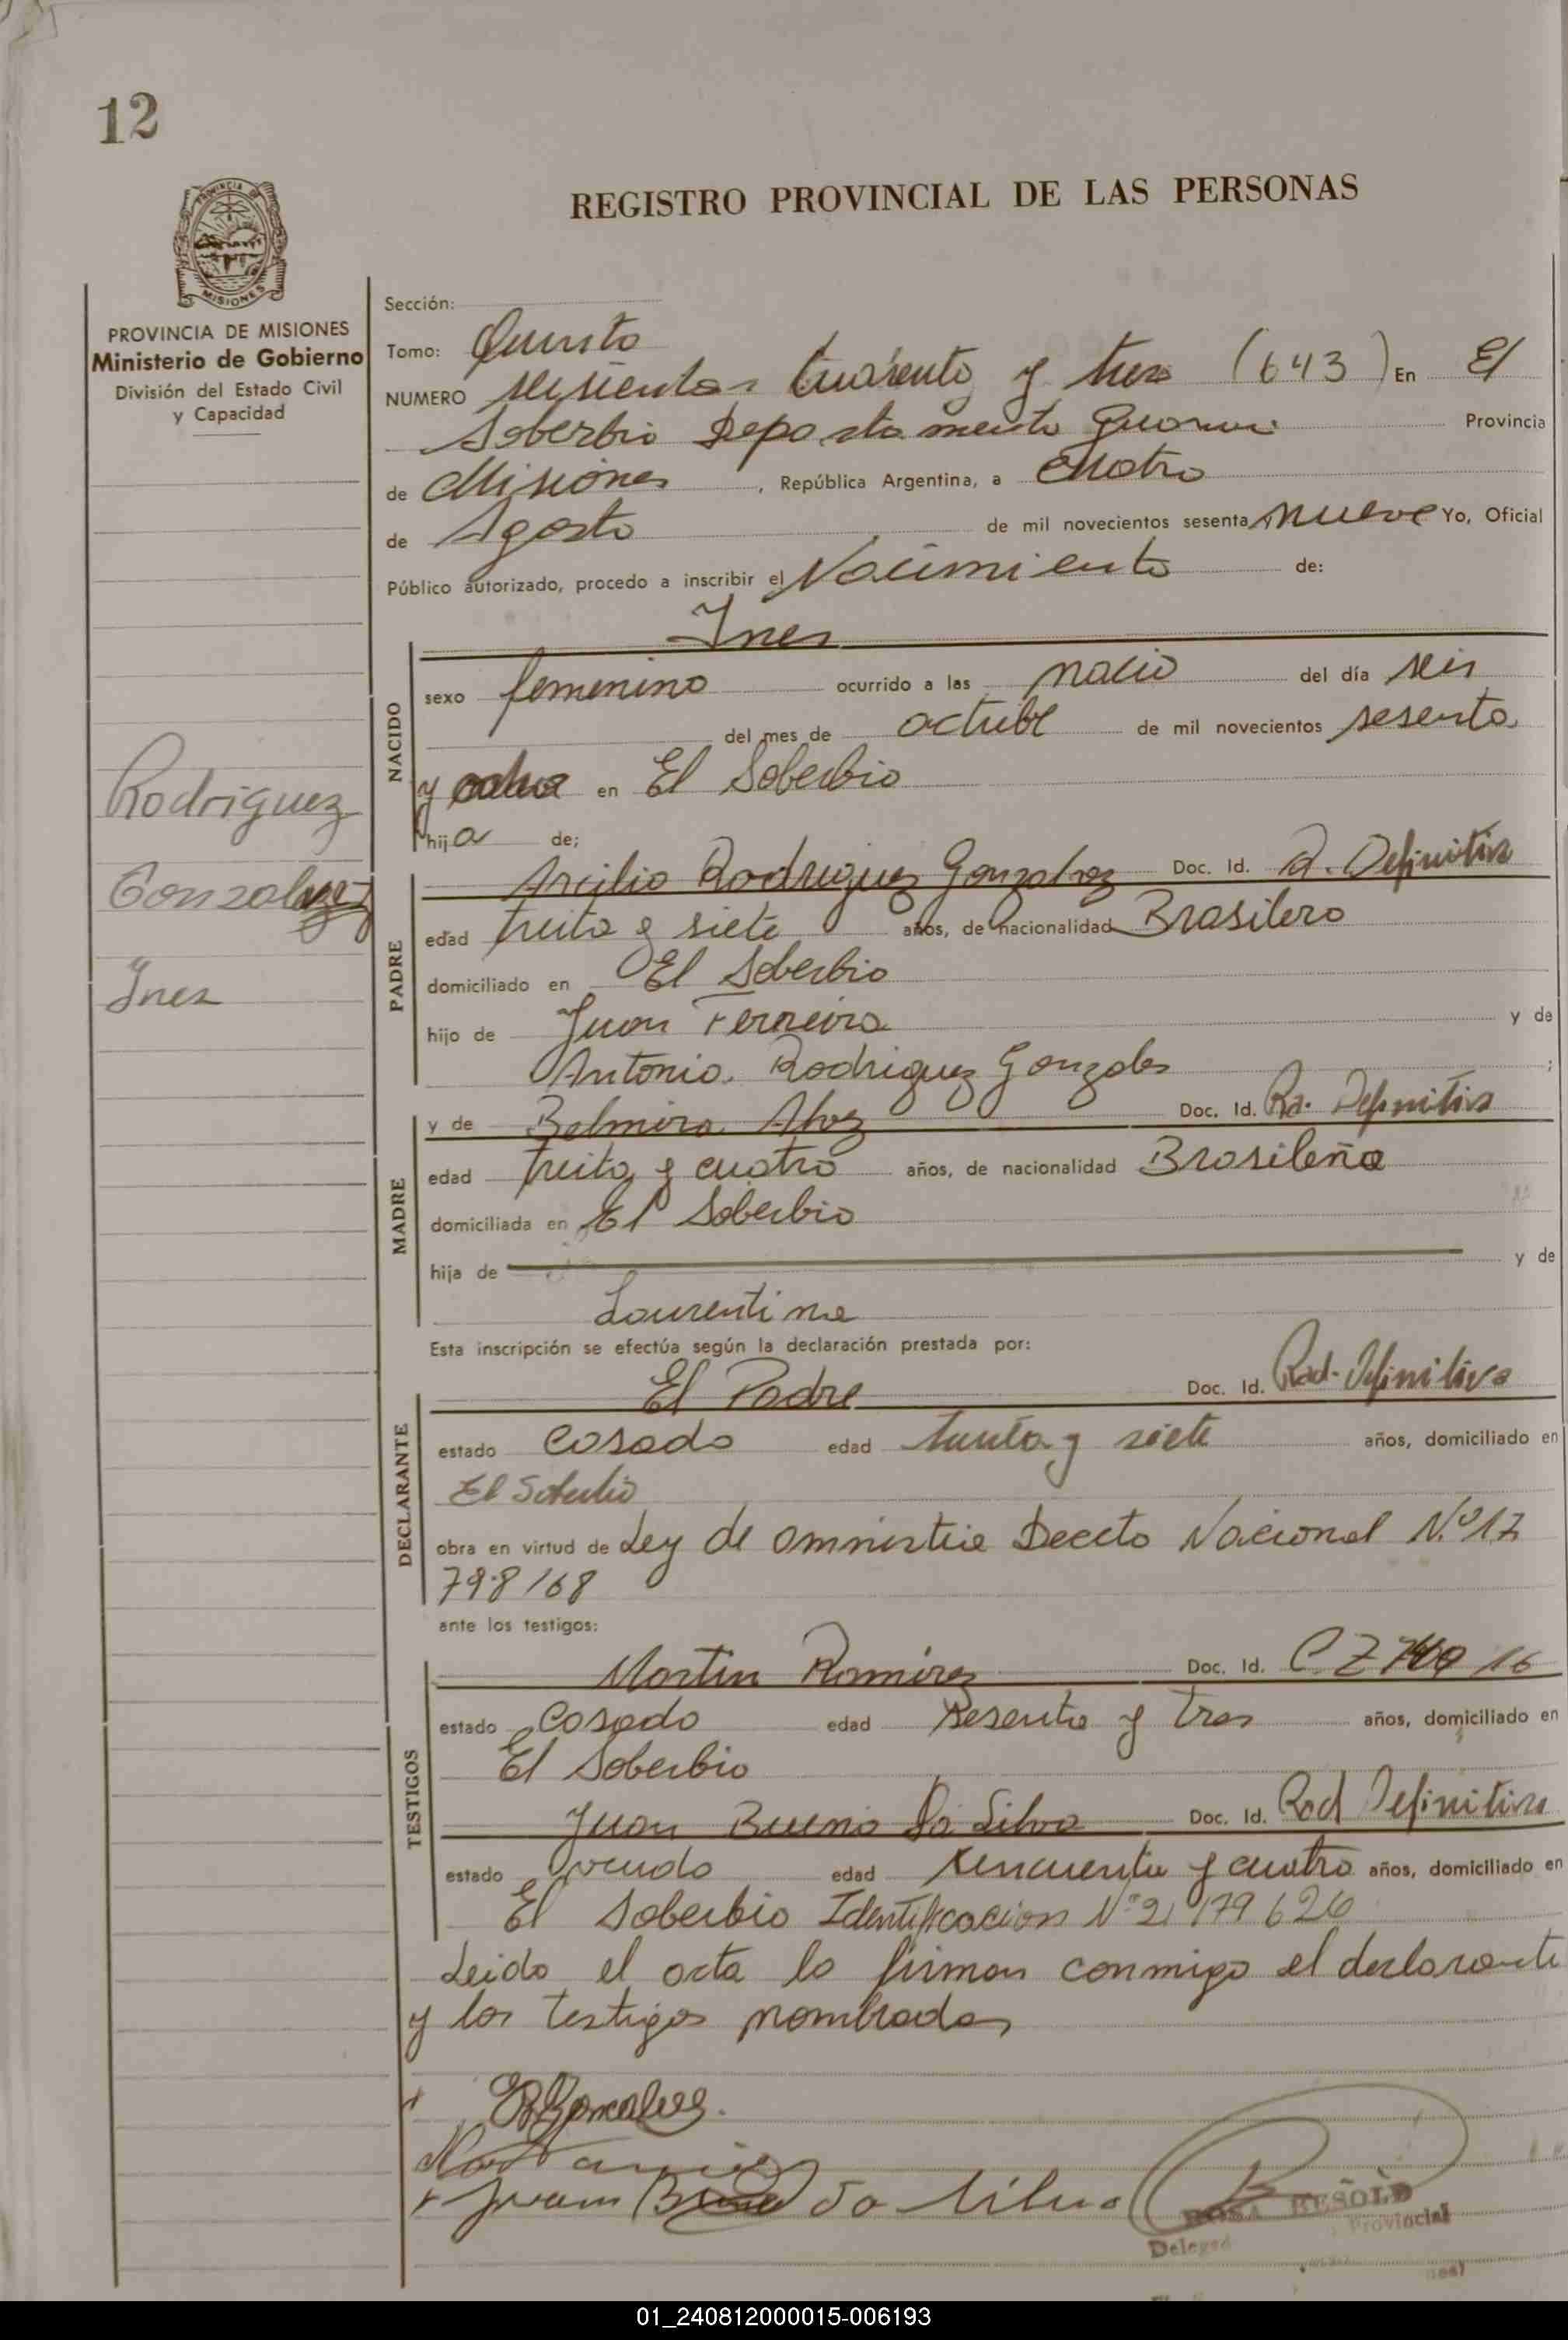 12
REGISTRO PROVINCIAL DE LAS PERSONAS
PROVINCIA DE MISIONES
MISIONES
PROVINCIA DE MISIONES
Ministerio de Gobierno
División del Estado Civil
y Capacidad
Rodriguez
Gonzalvez
Ines
Sección:
Tomo: Quinto
NUMERO seiscientos cuarenta y tres (643) En El
Soberbio Departamento Guarani Provincia
de Misiones, República Argentina, a cuatro
de Agosto de mil novecientos sesenta y nueve Yo, Oficial
Público autorizado, procedo a inscribir el Nacimiento de:
Ines
NACIDO
sexo femenino ocurrido a las nacio del día seis
del mes de octubre de mil novecientos sesenta
y ocho en El Soberbio
hija de;
PADRE
Arcilio Rodriguez Gonzalvez Doc. Id. R. Definitiva
edad treita y siete años, de nacionalidad Brasilero
domiciliado en El Soberbio
hijo de Juan Ferreira y de
Antonia Rodriguez Gonzales ;
MADRE
y de Belmira Alvez Doc. Id. Ra. Definitiva
edad treita y cuatro años, de nacionalidad Brasileña
domiciliada en El Soberbio
hija de y de
Laurentina
Esta inscripción se efectúa según la declaración prestada por:
DECLARANTE
El Padre Doc. Id. Rad. Definitiva
estado casado edad treinta y siete años, domiciliado en
El Soberbio
obra en virtud de Ley de amnistia Decreto Nacional N.º 17
798/68
ante los testigos:
TESTIGOS
Martin Ramirez Doc. Id. C Z 16
estado casado edad sesenta y tres años, domiciliado en
El Soberbio
Juan Bueno Da Silva Doc. Id. Rad Definitiva
estado viudo edad sincuenta y cuatro años, domiciliado en
El Soberbio Identificacion Nº 2179626
Leido el acta la firman conmigo el declarante
y los testigos nombrados
Gonçalves.
Juan Bueno da Silva
ROSA BESOLD
Provincial
01_240812000015-006193